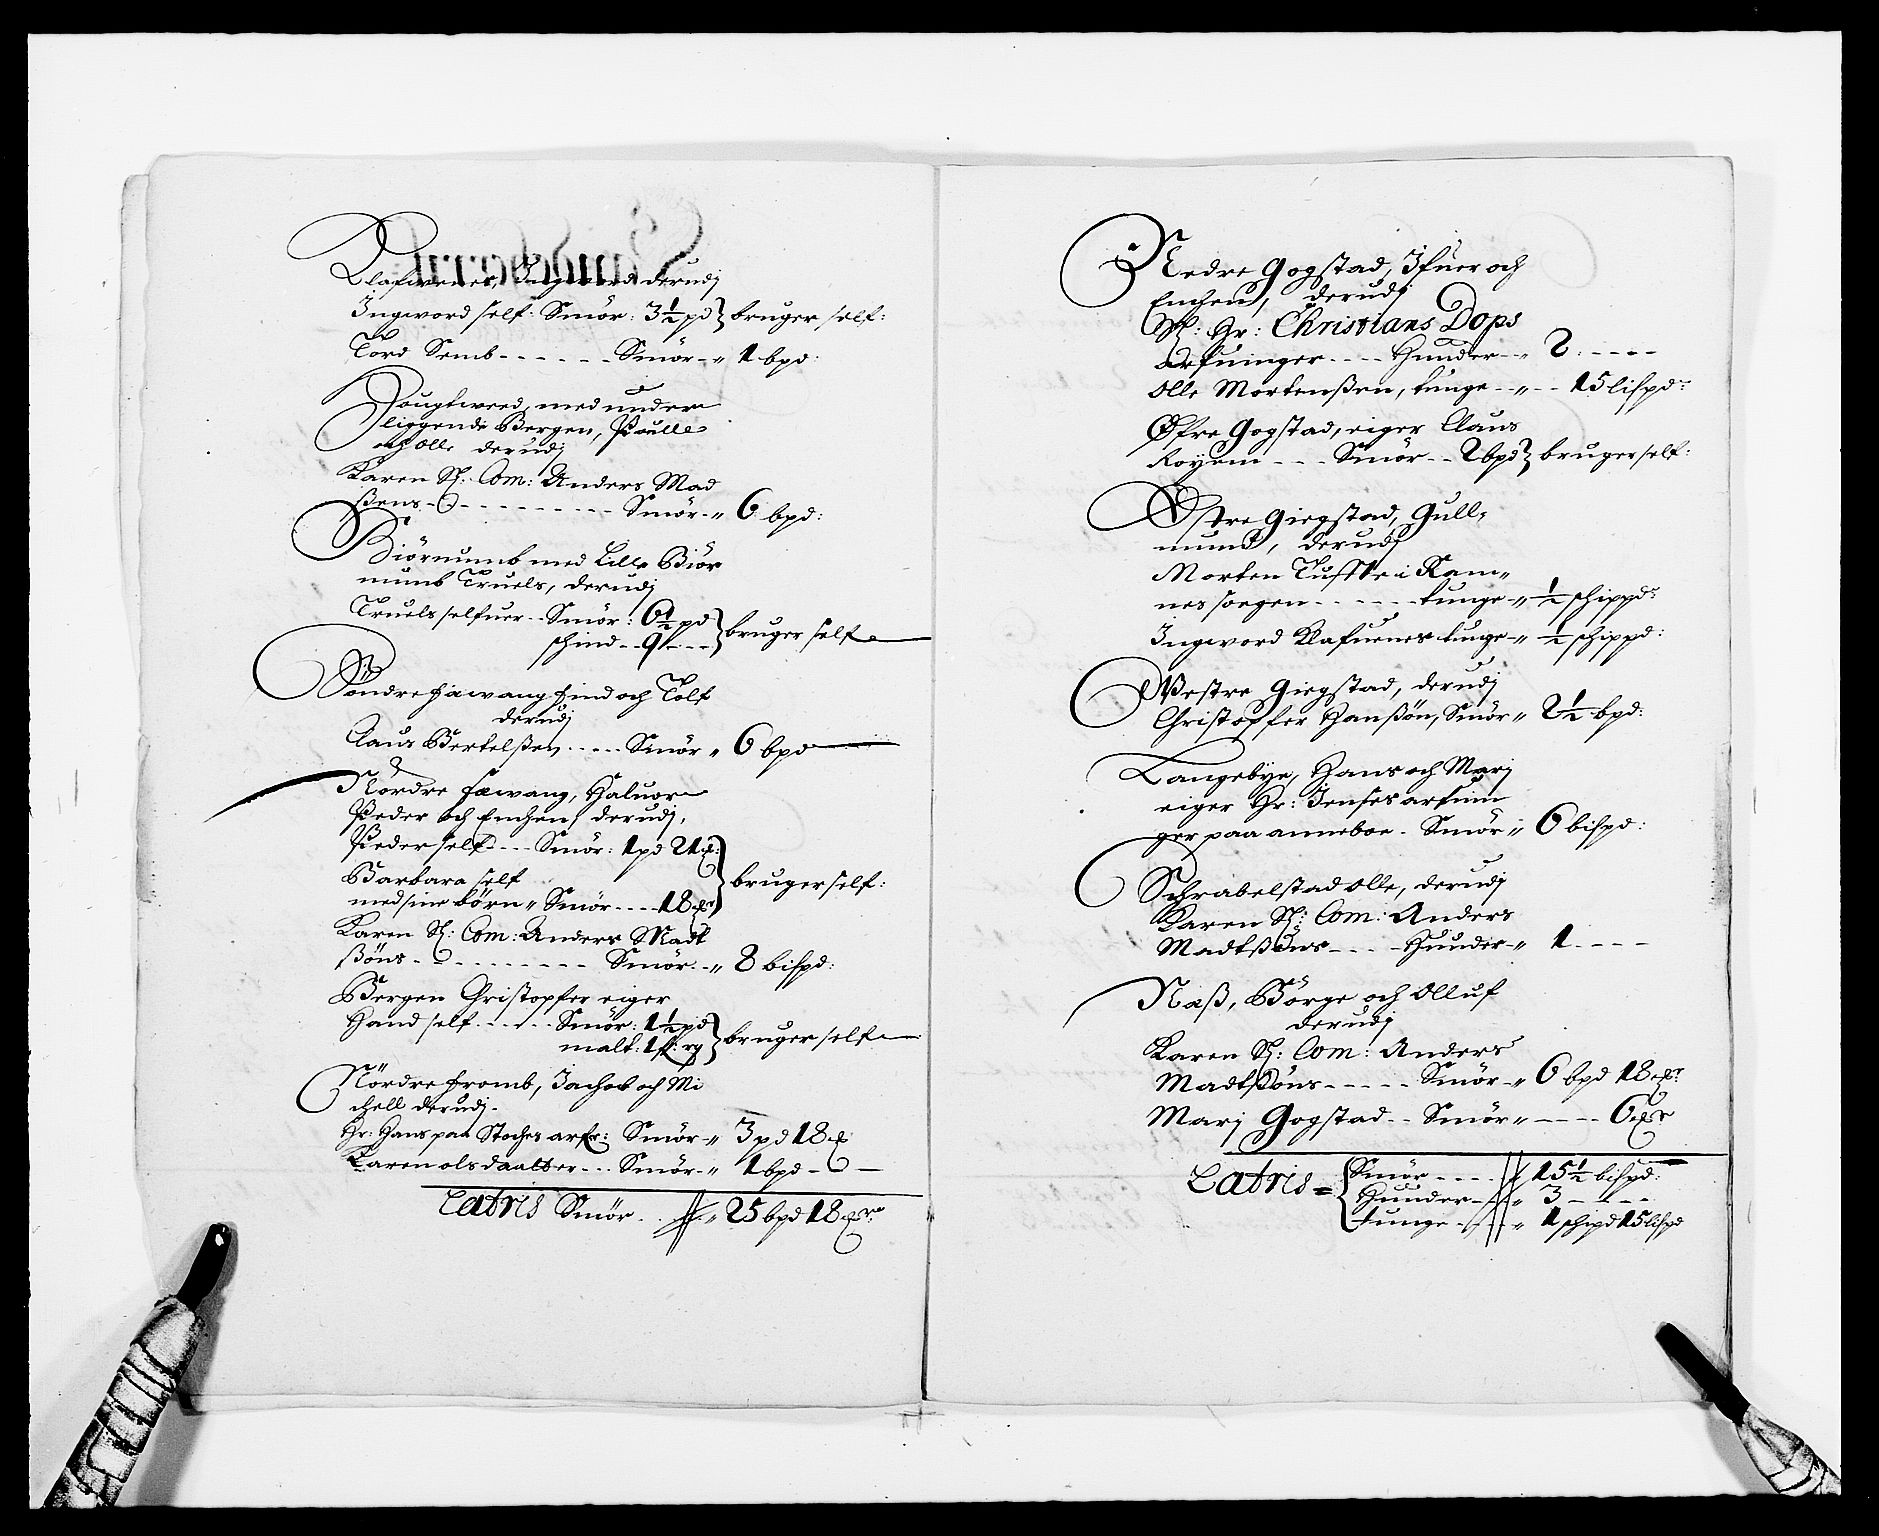 Klafwenes, Ingword derudj
Ingword self: Smör: 3½ pd } bruger self:
Tord Semb - - - - - - Smör - „ 1 bpd:
Hougtweed, med under
liggende Bergen, Poulle
och olle derudj
Karen Sl: Com: Anders Mad
ßens - - - - - - - - - - Smör - „ 6 bpd:
Biörnumb med Lille Biör
numb Truels, derudj
Truels selfuer - - Smör: 6½ pd } bruger self
schind - - 9 - - -
Söndre fawang find och Tolf
derudj
Claus Bertelßen - - - - - Smör „ 6 bpd
Nördre fæwang, Haluor
Peder och Enchen derudj,
Peder self - - - Smör: 1 pd 21 ℔:
Barbara self } bruger self:
med sine börn „ Smör - - - - 18 ℔r
Karen Sl: Com: Anders Madt
ßöns - - - - - - - - - - Smör - „ 8 bispd:
Bergen Christopfer eiger
Hand self - - - - - Smör: 1½ pd } bruger self
malt: 1 f: rg
Nördre fromb, Jachob och Mi
chell derudj.
Hr: Hans paa Stoches arfr: Smör - „ 3 pd 18 ℔
Karen olsdaatter - - - Smör - „ 1 bpd - -
Latris Smör - - „ 25 bpd 18 ℔r
Nedre Gogstad, Ifuer och
Enchen, derudj
Sl: Hr: Christians Dops
arfuinger - - - - Hunder - „ 2: - - - -
Olle Mortenßen, tunge - - „ - - 15 lispd:
Øfre Gogstad, eiger Claus
Røyem - - - Smör - - 2 bpd } bruger self:
Østre Giegstad, Gull„
mund, derudj
Morten Tuffte i Ram„
nes soegen - - - - - - tunge - „ ½ schippd:
Ingword Klafuenes tunge - „ ½ schippd:
Westre Giegstad, derudj
Christopffer Hanßön, Smör „ 2½ bpd:
Langebye, Hans och Marj
eiger Hr: Jenses arfuin
ger paa anneboe - Smör - „ 6 bispd:
Schrabelstad olle, derudj
Karen Sl: Com: Anders
Madtßöns - - - - Hunder - „ 1 - - - -
Næß, Börge och Olluf
derudj
Karen Sl: Com: Anders
Madtßöns - - - - - Smör - „ 6 bpd 18 ℔r
Marj Gogstad - - Smör „ - - - - 6 ℔r
Latris = { Smör - - - - „ 15½ bispd:
Hunder - - „ 3 - - - -
tunge - - - „ 1 schpd 15 lispd